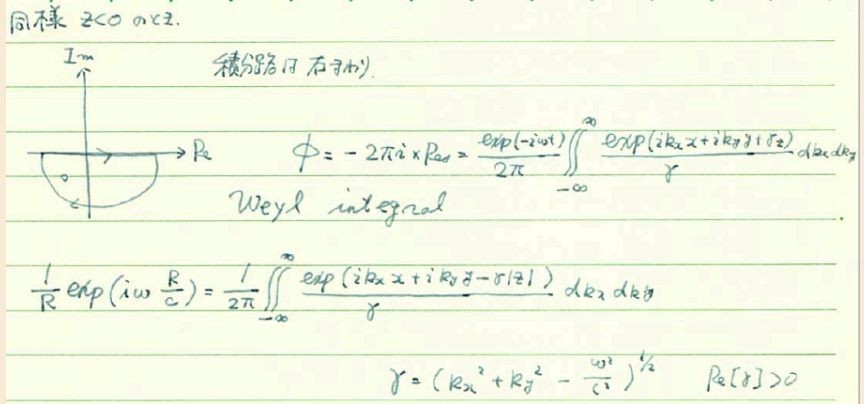 同様 z<0 のとき.
Im
積分路は 右まわり.
Re
ϕ = - 2πi × Res = exp(-iωt)/2π ∬_{-∞}^{∞} exp(ik_x x + ik_y y + γz)/γ dk_x dk_y
Weyl integral
1/R exp(iω R/c) = 1/2π ∬_{-∞}^{∞} exp(ik_x x + ik_y y - γ|z|)/γ dk_x dk_y
γ = (k_x² + k_y² - ω²/c²)^{1/2} Re[γ]>0